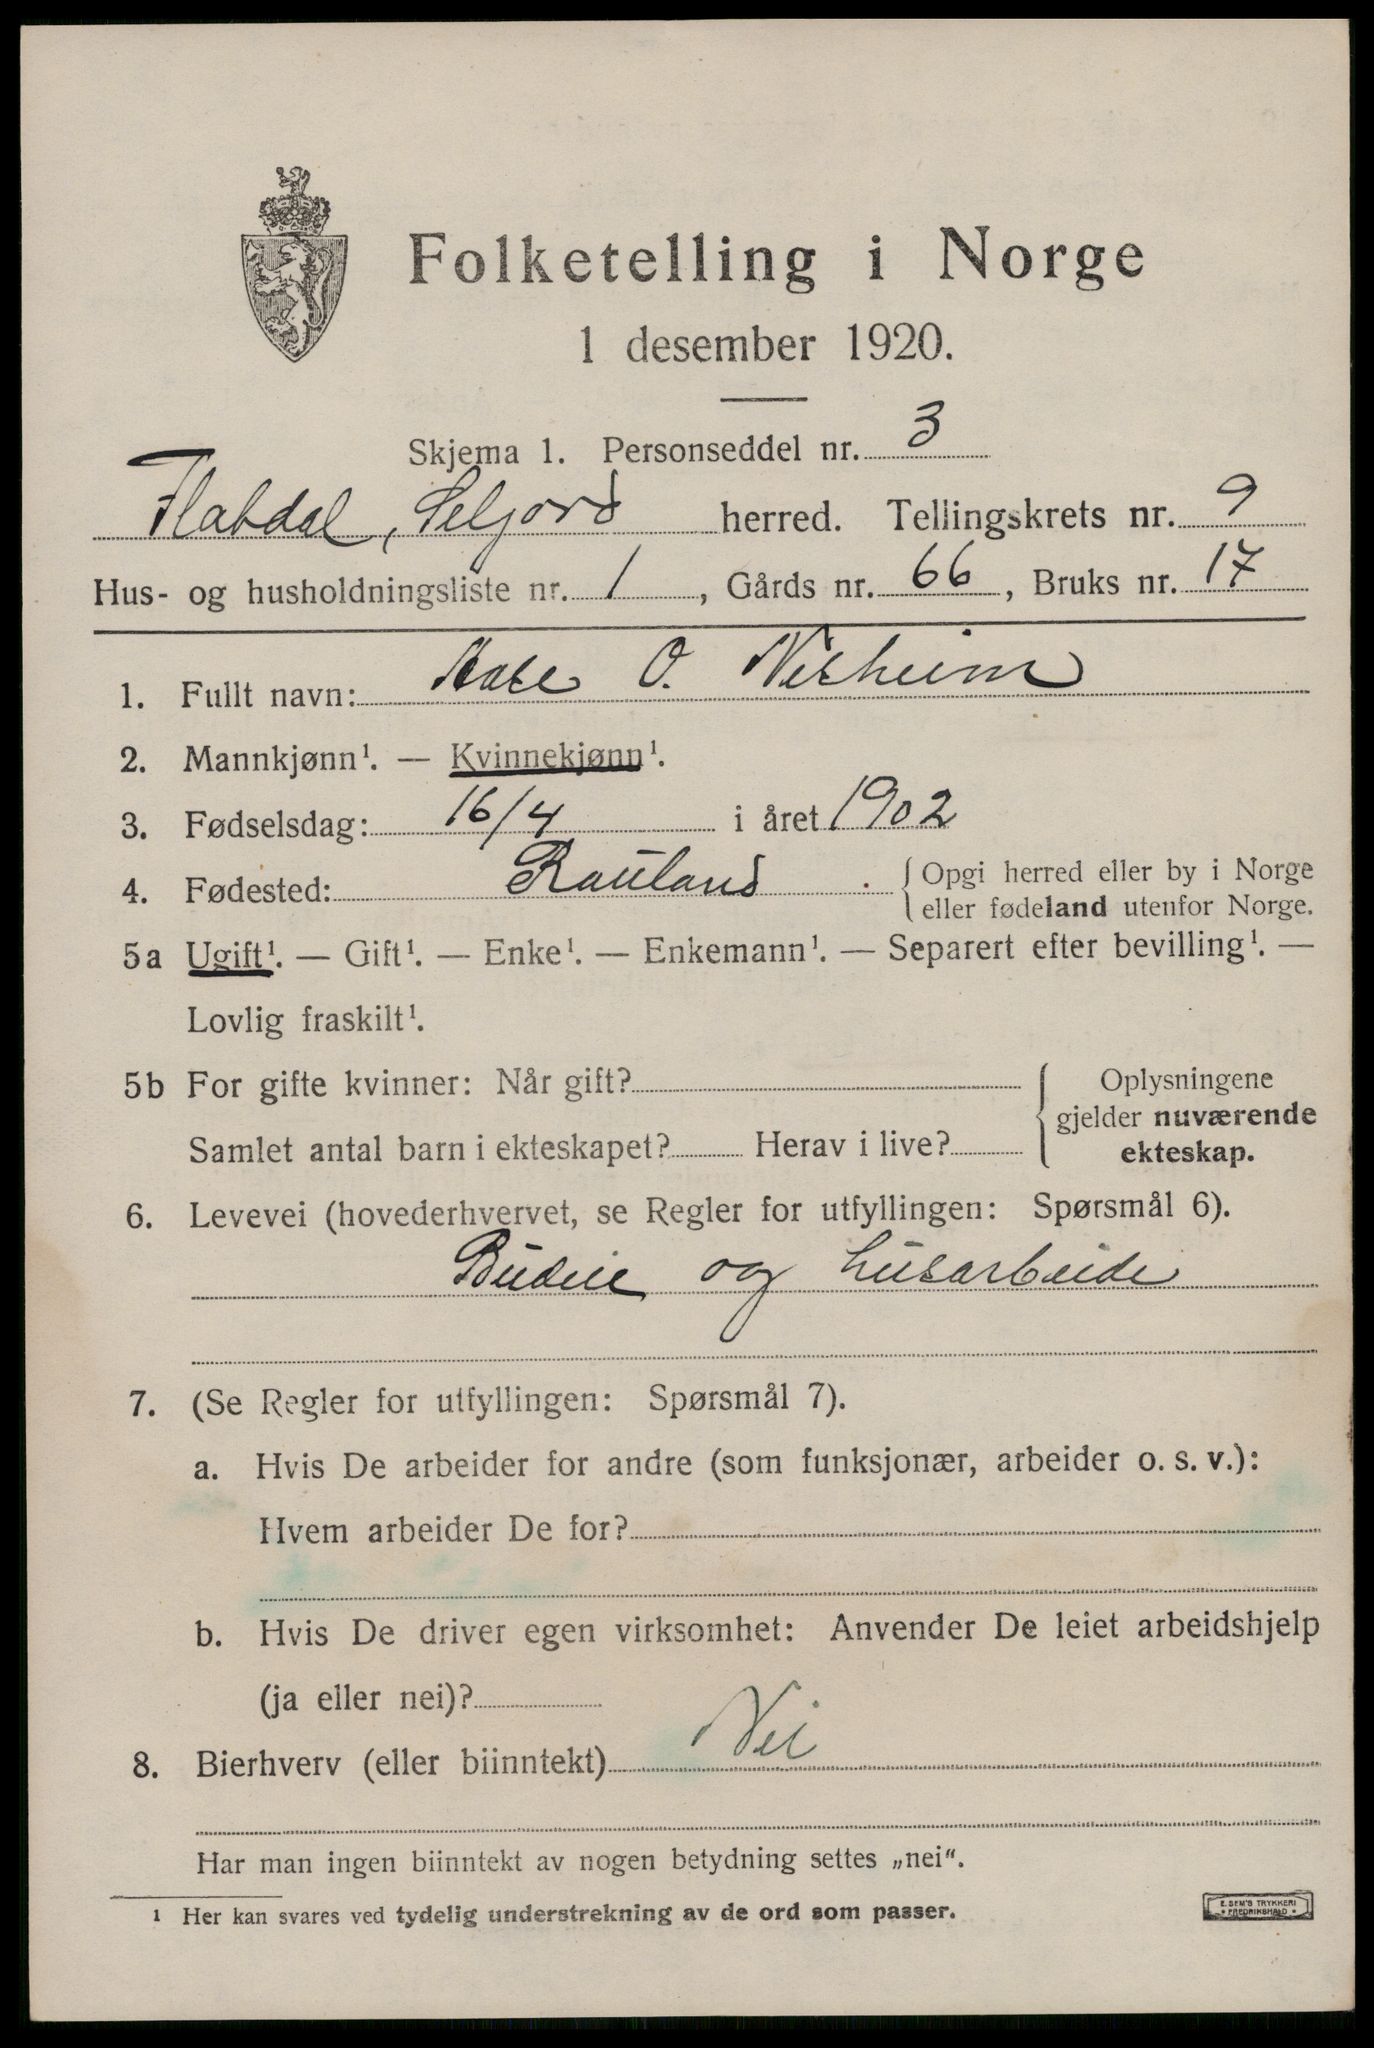 Folketelling i Norge
1 desember 1920.
Skjema 1. Personseddel nr. 3
Flatdal, Seljord herred. Tellingskrets nr. 9
Hus- og husholdningsliste nr. 1, Gårds nr. 66, Bruks nr. 17
1. Fullt navn: Aase O. Nisheim
2. Mannkjønn¹. — Kvinnekjønn¹.
3. Fødselsdag: 16/4 i året 1902
4. Fødested: Rauland. Opgi herred eller by i Norge
eller fødeland utenfor Norge.
5a Ugift¹. — Gift¹. — Enke¹. — Enkemann¹. — Separert efter bevilling¹. —
Lovlig fraskilt¹.
5b For gifte kvinner: Når gift? Oplysningene
gjelder nuværende
Samlet antal barn i ekteskapet? Herav i live? ekteskap.
6. Levevei (hovederhvervet, se Regler for utfyllingen: Spørsmål 6).
Budeie og husarbeide
7. (Se Regler for utfyllingen: Spørsmål 7).
a. Hvis De arbeider for andre (som funksjonær, arbeider o. s. v.):
Hvem arbeider De for?
b. Hvis De driver egen virksomhet: Anvender De leiet arbeidshjelp
(ja eller nei)?
8. Bierhverv (eller biinntekt) Nei
Har man ingen biinntekt av nogen betydning settes „nei“.
¹ Her kan svares ved tydelig understrekning av de ord som passer.
E. SEM'S TRYKKERI
FREDRIKSHALD